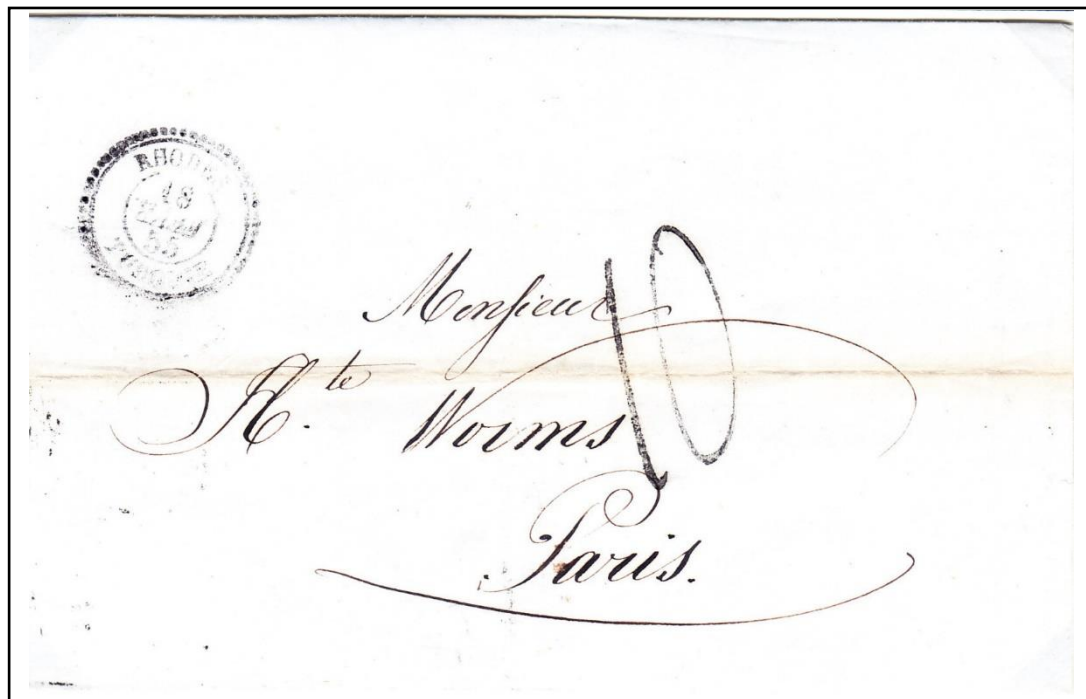 RHODES
18
55
Monsieur
10
H.te Worms
Paris.